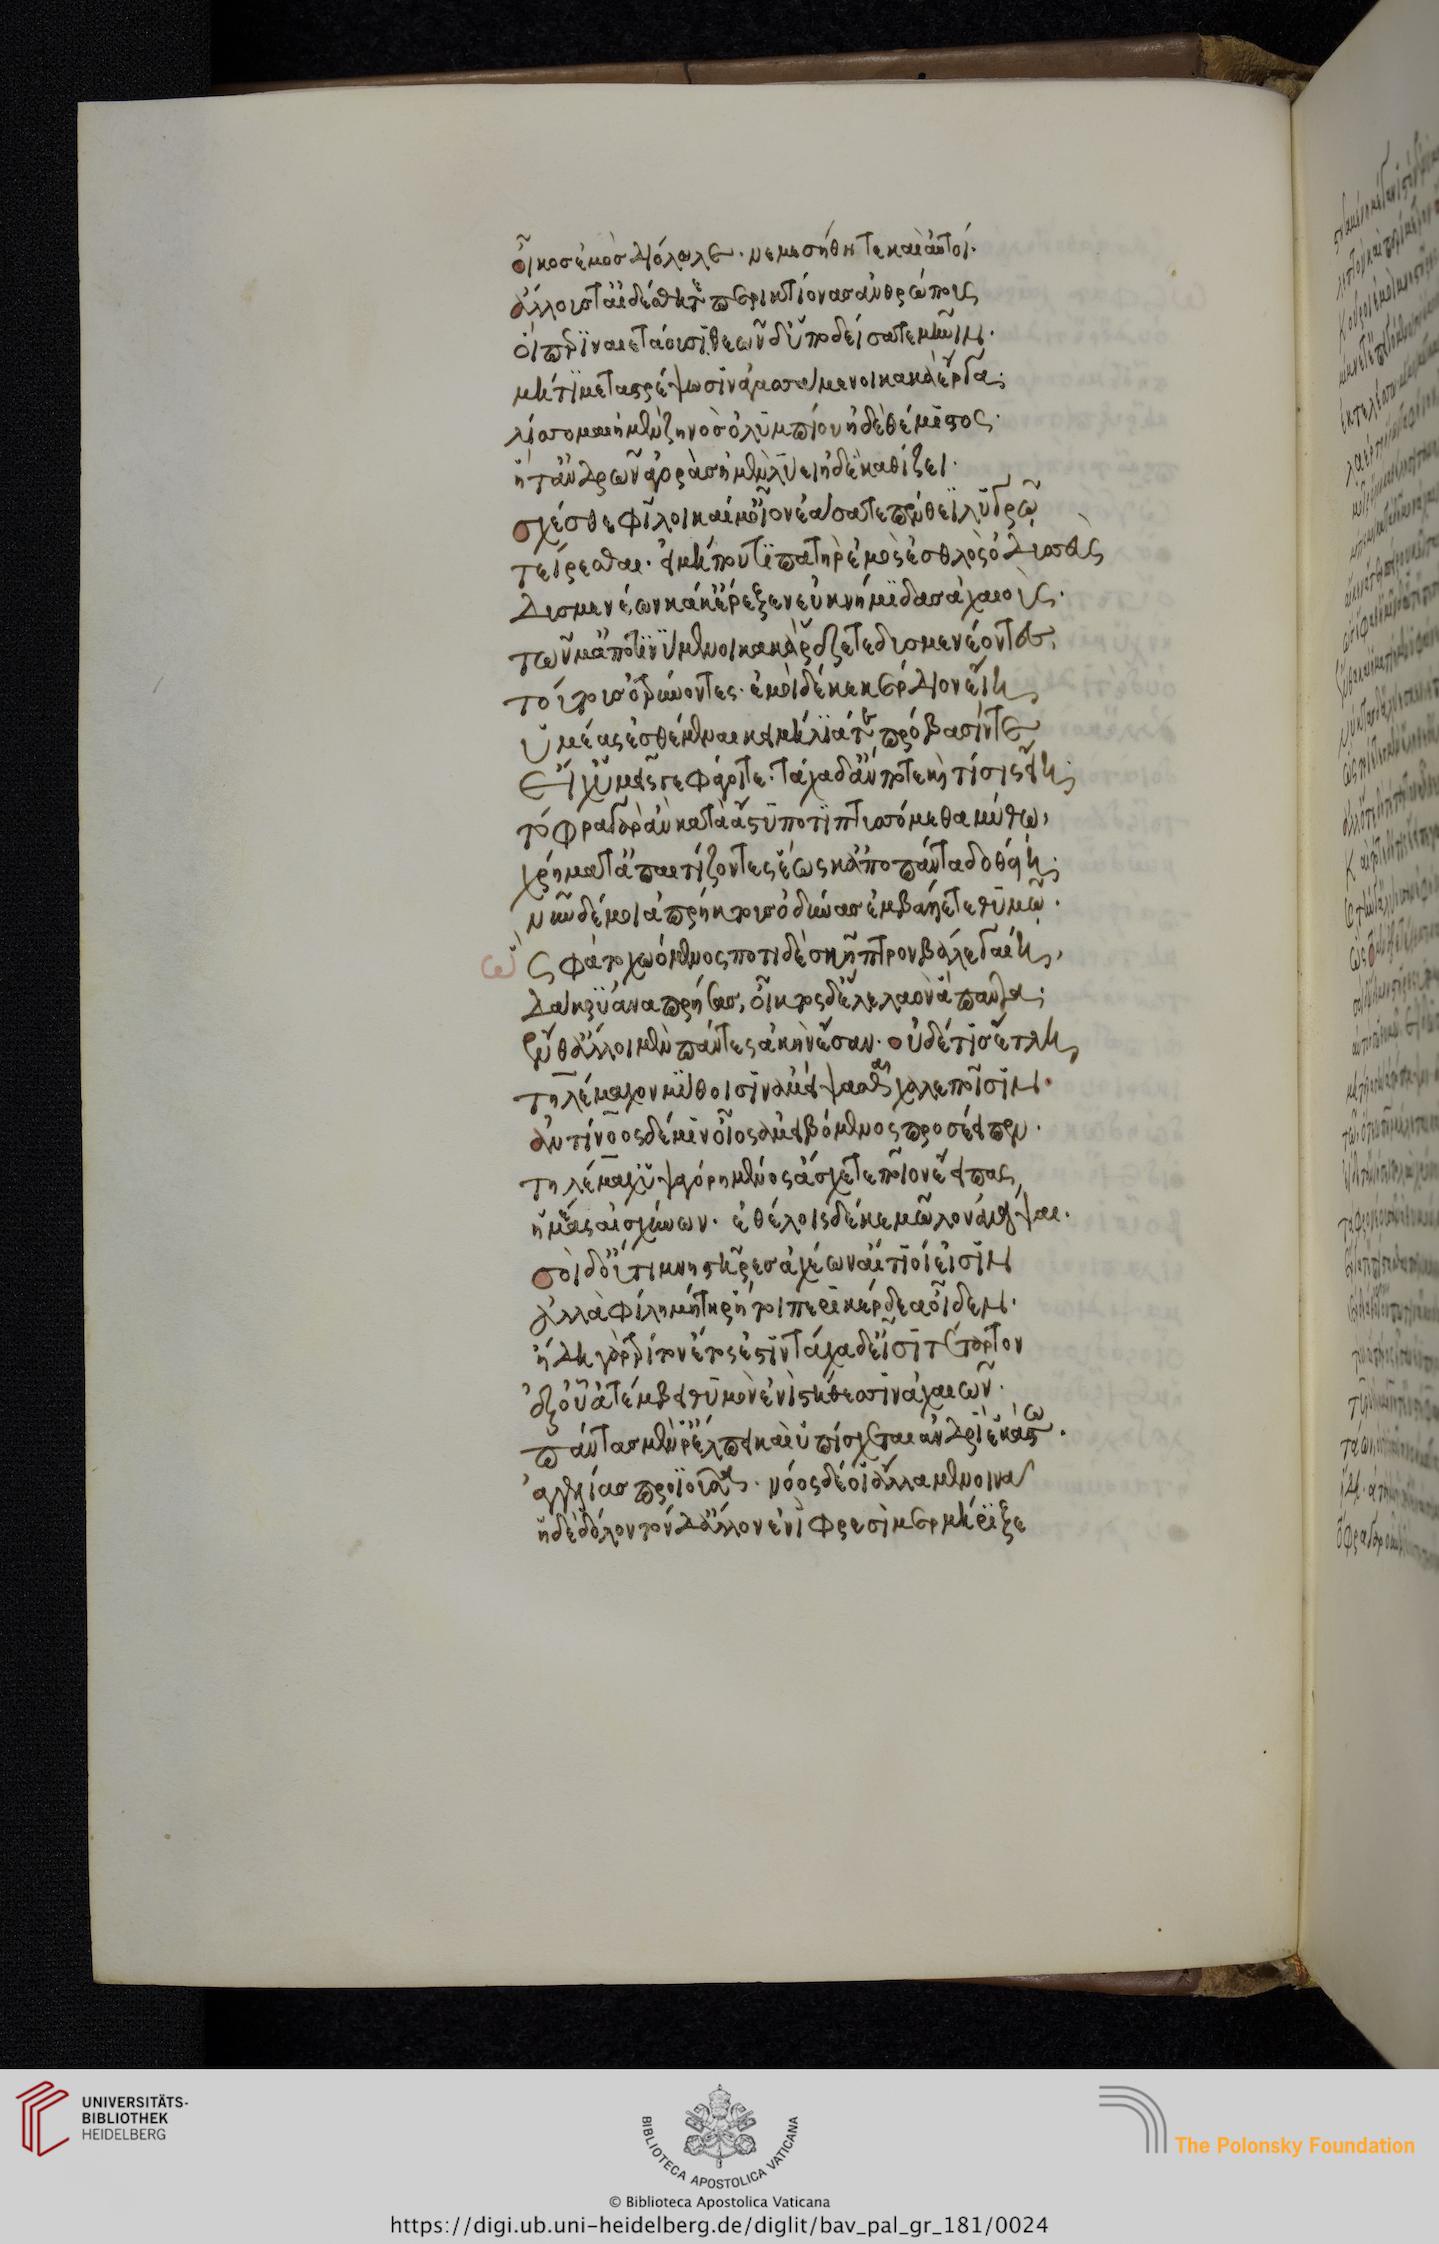 οἶκος ἐμὸς διόλωλε· νεμεσήθητε καὶ αὐτοί·
ἄλλους τ' αἰδέσθητε περικτίονας ἀνθρώπους
οἳ περιναιετάουσι· θεῶν δ' ὑποδείσατε μῆνιν·
μή τι μεταστρέψωσιν ἀγασσάμενοι κακὰ ἔργα·
λίσσομαι ἠμὲν ζηνὸς ὀλυμπίου ἠδὲ θέμιστος·
ἥτ' ἀνδρῶν ἀγορὰς ἠμὲν λύει ἠδὲ καθίζει·
σχέσθε φίλοι καί μ' οἶον ἐάσατε πένθεϊ λυγρῷ
τείρεσθαι· εἰ μή πού τι πατὴρ ἐμὸς ἐσθλὸς ὀδυσσεὺς
δυσμενέων κάκ' ἔρεξεν ἐυκνήμιδας ἀχαιούς·
τῶν μ' ἀποτινύμενοι κακὰ ῥέζετε δυσμενέοντες,
τούτους ὀτρύνοντες· ἐμοὶ δέ κε κέρδιον εἴη,
ὑμέας ἐσθέμεναι κειμήλιά τε πρόβασίν τε
εἴ χ' ὑμεῖς γε φάγοιτε· τάχα δ' ἄν ποτε καὶ τίσις εἴη·
τόφρα γὰρ ἂν κατὰ ἄστυ ποτιπτυσσόμεθα μύθω,
χρήματ' ἀπαιτίζοντες ἕως κ' ἀπὸ πάντα δοθείη·
νῦν δέ μοι ἀπρήκτους ὀδύνας ἐμβάλλετε θυμῶ·
ὣς φάτο χωόμενος ποτὶ δὲ σκῆπτρον βάλε γαίη,
δάκρυ' ἀναπρήσας, οἶκτος δ' ἕλε λαὸν ἅπαντα·
ἔνθ' ἄλλοι μὲν πάντες ἀκὴν ἔσαν· οὐδέ τις ἔτλη,
τηλέμαχον μύθοισιν ἀμείψασθαι χαλεποῖσιν·
ἀντίνοος δέ μιν οἶος ἀμειβόμενος προσέειπεν·
τηλέμαχ' ὑψαγόρη μένος ἄσχετε ποῖον ἔειπας
ἡμέας αἰσχύνων· ἐθέλοις δέ κε μῶμον ἀνάψαι·
σοὶ δ' οὔτι μνηστῆρες ἀχαιῶν αἴτιοί εἰσιν
ἀλλὰ φίλη μήτηρ ἥ τοι περὶ κέρδεα οἶδεν·
ἤδη γὰρ τρίτον ἔτος ἐστὶν τάχα δ' εἶσι τέταρτον
ἐξ οὗ ἀτέμβει θυμὸν ἐνὶ στήθεσσιν ἀχαιῶν·
πάντας μέν ῥ' ἔλπει καὶ ὑπίσχεται ἀνδρὶ ἑκάστω·
ἀγγελίας προϊεῖσα· νόος δέ οἱ ἄλλα μενοινᾶ
ἡ δὲ δόλον τόνδ' ἄλλον ἐνὶ φρεσὶ μερμήριξε
UNIVERSITÄTS-
BIBLIOTHEK
HEIDELBERG
BIBLIOTECA APOSTOLICA VATICANA
The Polonsky Foundation
© Biblioteca Apostolica Vaticana
https://digi.ub.uni-heidelberg.de/diglit/bav_pal_gr_181/0024